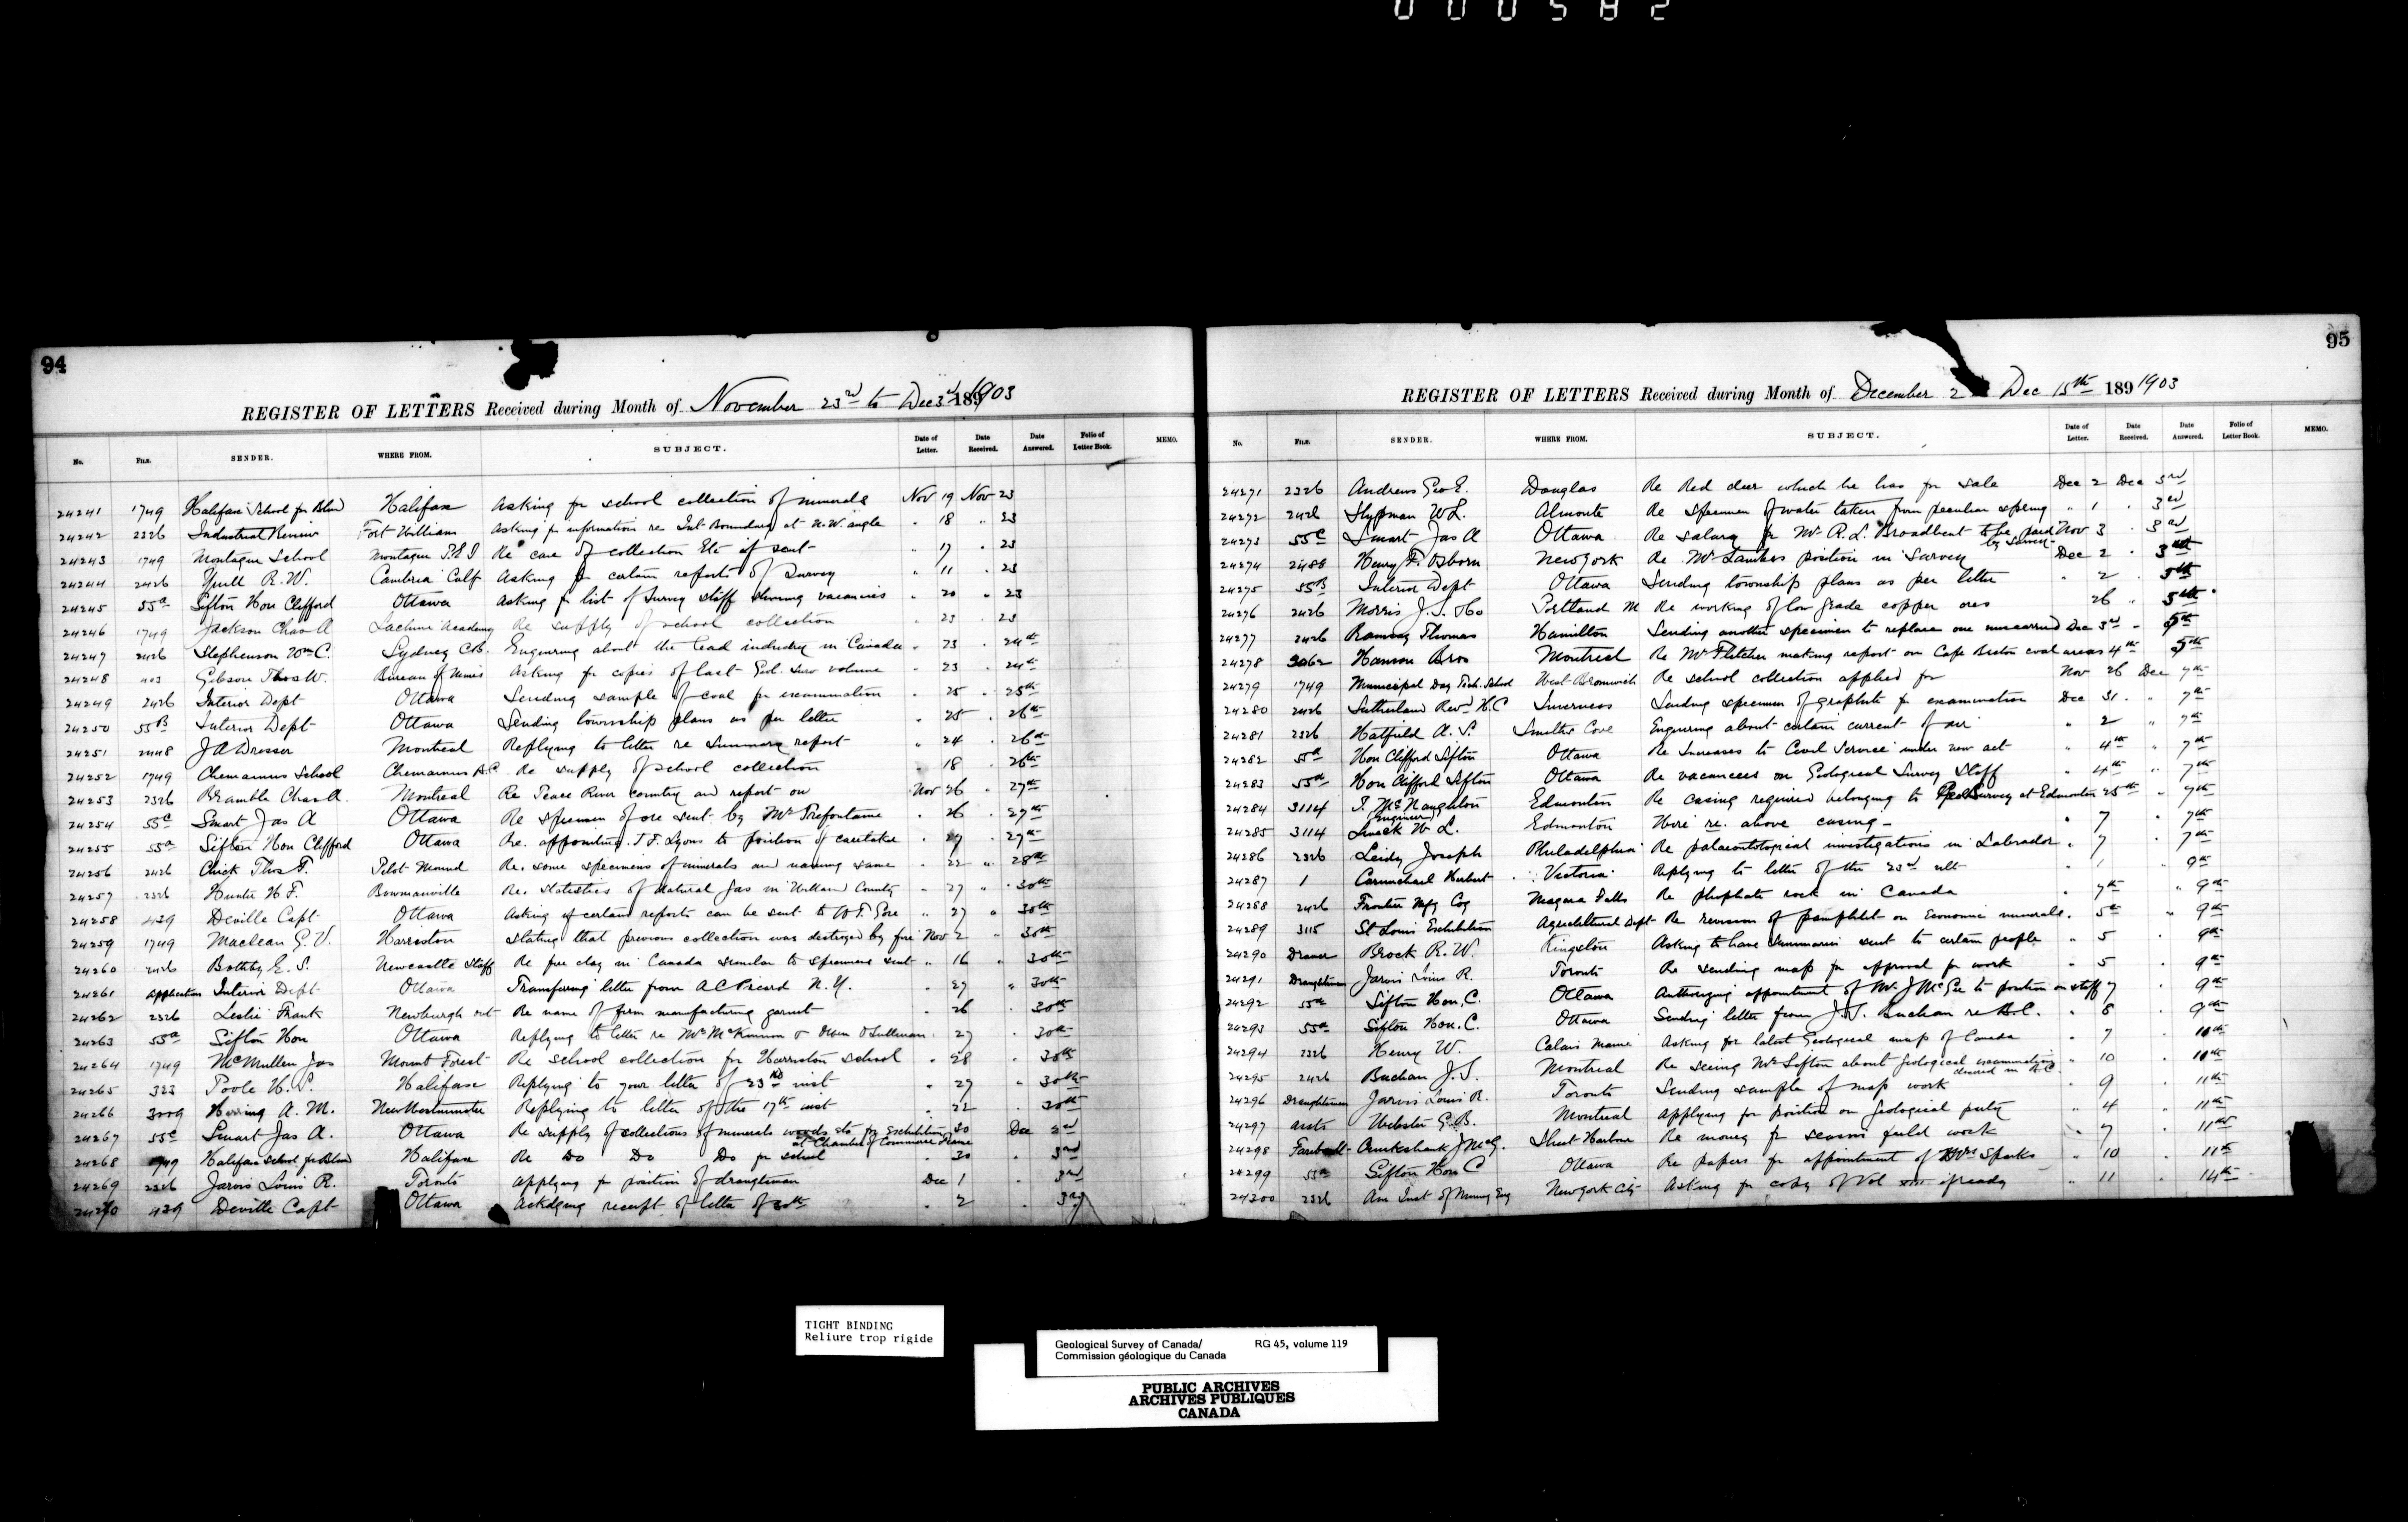 000582
94
REGISTER OF LETTERS Received during Month of November 23rd to Dec 3rd 1891903
No. FILE. SENDER. WHERE FROM. SUBJECT. Date of Letter. Date Received. Date Answered. Folio of Letter Book. MEMO.
24241 1749 Halifax School for Blind Halifax Asking for school collection of minerals Nov 19 Nov 23
24242 2326 Industrial Review Fort William Asking for information re Int Boundary at N.W. angle " 18 " 23
24243 1749 Montague School Montague P.E.I Re care of collection Etc if sent " 17 " 23
24244 2426 Yuill R.W. Cambria Calf Asking for certain reports of Survey " 11 " 23
24245 55a Sifton Hon Clifford Ottawa Asking for list of Survey staff showing vacancies " 20 " 23
24246 1749 Jackson Chas A Lachine Academy Re supply of school collection " 23 " 23
24247 2426 Stephenson Wm C. Sydney C.B. Enquiring about the lead industry in Canada " 23 " 24th
24248 103 Gibson Thos W. Bureau of Mines Asking for copies of last Geol. Surv volume " 23 " 24th
24249 2426 Interior Dept Ottawa Sending sample of coal for examination " 25 " 25th
24250 55B Interior Dept Ottawa Sending township plans as per letter " 25 " 26th
24251 2448 J A Dresser Montreal Replying to letter re Summary report " 24 " 26th
24252 1749 Chemainus School Chemainus B.C. Re supply of school collection " 18 " 26th
24253 2326 Bramble Chas A. Montreal Re Peace River country and report on Nov 26 " 27th
24254 55c Smart Jas A Ottawa Re specimen of ore sent by Mr Prefontaine " 26 " 27th
24255 55a Sifton Hon Clifford Ottawa Re. appointing J.F. Lyons to position of caretaker " 27 " 27th
24256 2426 Chick Thos F. Pilot Mound Re. some specimens of minerals and naming same " 22 " 28th
24257 2326 Hunter H.F. Bowmanville Re. Statistics of Natural Gas in Welland County " 27 " 30th
24258 439 Deville Capt Ottawa Asking if certain reports can be sent to W.F. Gore " 27 " 30th
24259 1749 Maclean G.V. Harriston Stating that previous collection was destroyed by fire Nov 2 " 30th
24260 2426 Boththy E.S. Newcastle Staff Re fire clay in Canada similar to specimens sent " 16 " 30th
24261 Application Interior Dept Ottawa Transfering letter from A C Picard N.Y. " 27 " 30th
24262 2326 Leslie Frank Newburgh Re name of firm manufacturing garnet " 26 " 30th
24263 55a Sifton Hon Ottawa Replying to letter re Mr McKinnon & Owen O'Sullivan " 27 " 30th
24264 1749 McMullen Jas Mount Forest Re school collection for Harriston school " 28 " 30th
24265 323 Poole H.S. Halifax Replying to your letter of 23rd inst " 27 " 30th
24266 3009 Herring A.M. New Westminster Replying to letter of the 17th inst " 22 " 30th
24267 55c Smart Jas A. Ottawa Re supply of collections of minerals woods etc for Exhibition 30 Dec 2nd
at Chamber of Commerce France
24268 1749 Halifax School for Blind Halifax Re Do Do Do for school " 30 " 3rd
24269 2326 Jarvis Louis R. Toronto Applying for position of draughtsman Dec 1 " 3rd
24270 439 Deville Capt Ottawa Ackdging receipt of letter of 30th " 2 " 3rd
95
REGISTER OF LETTERS Received during Month of December 2 Dec 15th 1891903
No. FILE. SENDER. WHERE FROM. SUBJECT. Date of Letter. Date Received. Date Answered. Folio of Letter Book. MEMO.
24271 2326 Andrews Geo E. Douglas Re Red deer which he has for sale Dec 2 Dec 3rd
24272 2426 Slypman W.L. Almonte Re specimen of water taken from peculiar spring " 1 " 3rd
24273 55c Smart Jas A Ottawa Re salary for Mr R.L. Broadbent to be paid Nov 3 " 3rd
by Survey
24274 2488 Henry F. Osborn New York Re Mr Lambes position in Survey Dec 2 " 3rd
24275 55B Interior Dept Ottawa Sending township plans as per letter " 2 " 5th
24276 2426 Morris J.S. & Co Portland M Re working of low grade copper ores 26 " 5th
24277 2426 Ramsay Thomas Hamilton Sending another specimen to replace one miscarried Dec 3rd " 5th
24278 3062 Hanson Bros Montreal Re Mr Fletcher making report on Cape Breton coal areas 4th " 5th
24279 1749 Municipal Day Tech. School West Bromwich Re school collection applied for Nov 26 Dec 7th
24280 2426 Sutherland Revd H.C Inverness Sending specimen of graphite for examination Dec 31 " 7th
24281 2326 Hatfield A.S. Smiths Cove Enquiring about certain current of air " 2 " 7th
24282 55a Hon Clifford Sifton Ottawa Re Increases to Civil Service under new act " 4th " 7th
24283 55a Hon Clifford Sifton Ottawa Re vacancies on Geological Survey Staff " 4th " 7th
24284 3114 T. McNaughton Edmonton Re casing required belonging to Geol Survey at Edmonton 25th " 7th
(Engineer)
24285 3114 Smeck W L. Edmonton Wire re. above casing " 7 " 7th
24286 2326 Leidy Joseph Philadelphia Re palaeontological investigations in Labrador " 7 " 7th
24287 1 Carmichael Herbert Victoria Replying to letter of the 23rd ult " 1 " 9th
24288 2426 Frontier Mfg Coy Niagara Falls Re phosphate rock in Canada " 7th " 9th
24289 3115 St Louis Exhibition Agricultural Dept Re revision of pamphlet on Economic minerals " 5th " 9th
24290 Drawer Brock R.W. Kingston Asking to have Summaries sent to certain people " 5 " 9th
24291 Draughtsman Jarvis Louis R. Toronto Re sending map for approval for work " 5 " 9th
24292 55a Sifton Hon. C. Ottawa Authorizing appointment of Mr J McGee to position on staff 7 " 9th
24293 55a Sifton Hon. C. Ottawa Sending letter from J.S. Buchan re B.C. " 8 " 9th
24294 2326 Henry W. Calais Maine Asking for latest Geological map of Canada " 7 " 10th
24295 2426 Buchan J.S. Montreal Re seeing Mr Sifton about geological examination " 10 " 10th
desired in B.C.
24296 Draughtsman Jarvis Louis R. Toronto Sending sample of map work " 9 " 11th
24297 assts Webster G.B. Montreal Applying for position on geological party " 4 " 11th
24298 Faribault Cruikshank J McG. Sheet Harbour Re money for seasons field work " 7 " 11th
24299 55a Sifton Hon C Ottawa Re papers for appointment of Mrs Sparks " 10 " 11th
24300 2326 Am Inst of Mining Eng New York City Asking for copy of Vol XIII if ready " 11 " 14th
TIGHT BINDING
Reliure trop rigide
Geological Survey of Canada/ RG 45, volume 119
Commission géologique du Canada
PUBLIC ARCHIVES
ARCHIVES PUBLIQUES
CANADA